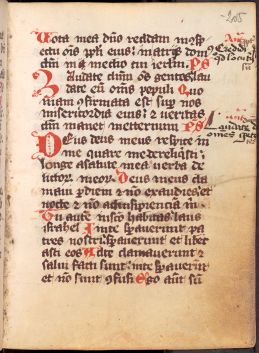 205
Vota mea dño reddam in ɔsp
ectu oīs ppłi eius: in atriis dom
dñi in medio tui ierłm. Ps
Laudate dñm oēs gentes lau
date eū omēs populi Quo
niam ɔfirmata est sup nos
misericordia eius: et veritas
dñi manet in eternum Ps
Deus deus meus respice in
me quare me dereliqsti:
longe a salute mea verba de
lictor meor Deus meus cla
mabo p diem et nō exaudies: et
nocte et nō ad insipienciā m
Tu autē in scō habitas laus
israhel In te speraverunt pa
tres nostri: speraverunt et liber
asti eos Ad te clamaverunt et
salvi facti sunt: in te speraverūt
et nō sunt ɔfusi Ego aūt sū
Credidi
Laudate d
omēs